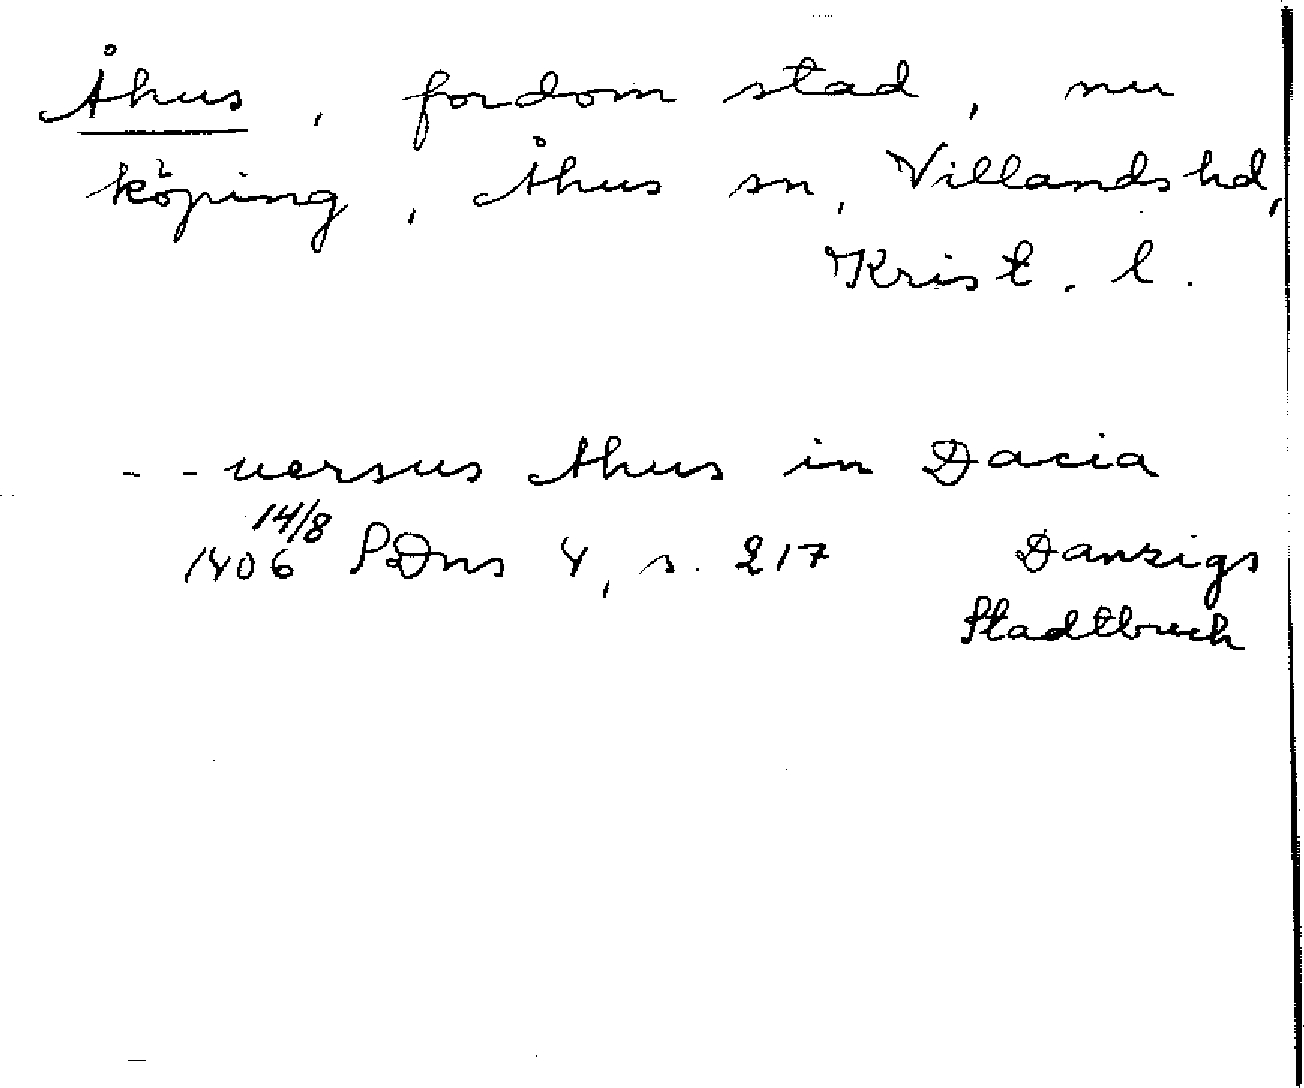 Åhus, fordom stad, nu
köping, Åhus sn, Villands hd,
Krist. l.
- - uersus Ahus in Dacia
14/8
1406 SDns 4, s. 217 Danzigs
Stadtbuch